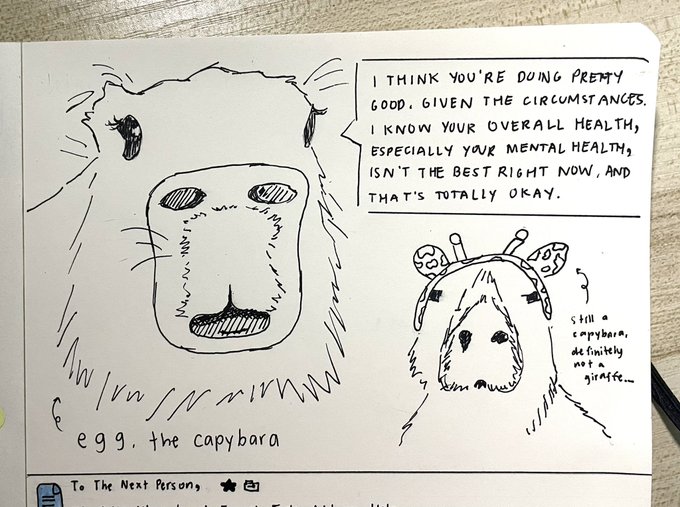 I THINK YOU'RE DOING PRETTY
GOOD. GIVEN THE CIRCUMSTANCES.
I KNOW YOUR OVERALL HEALTH,
ESPECIALLY YOUR MENTAL HEALTH,
ISN'T THE BEST RIGHT NOW, AND
THAT'S TOTALLY OKAY.
still a
capybara,
definitely
not a
giraffe...
egg. the capybara
To The Next Person,